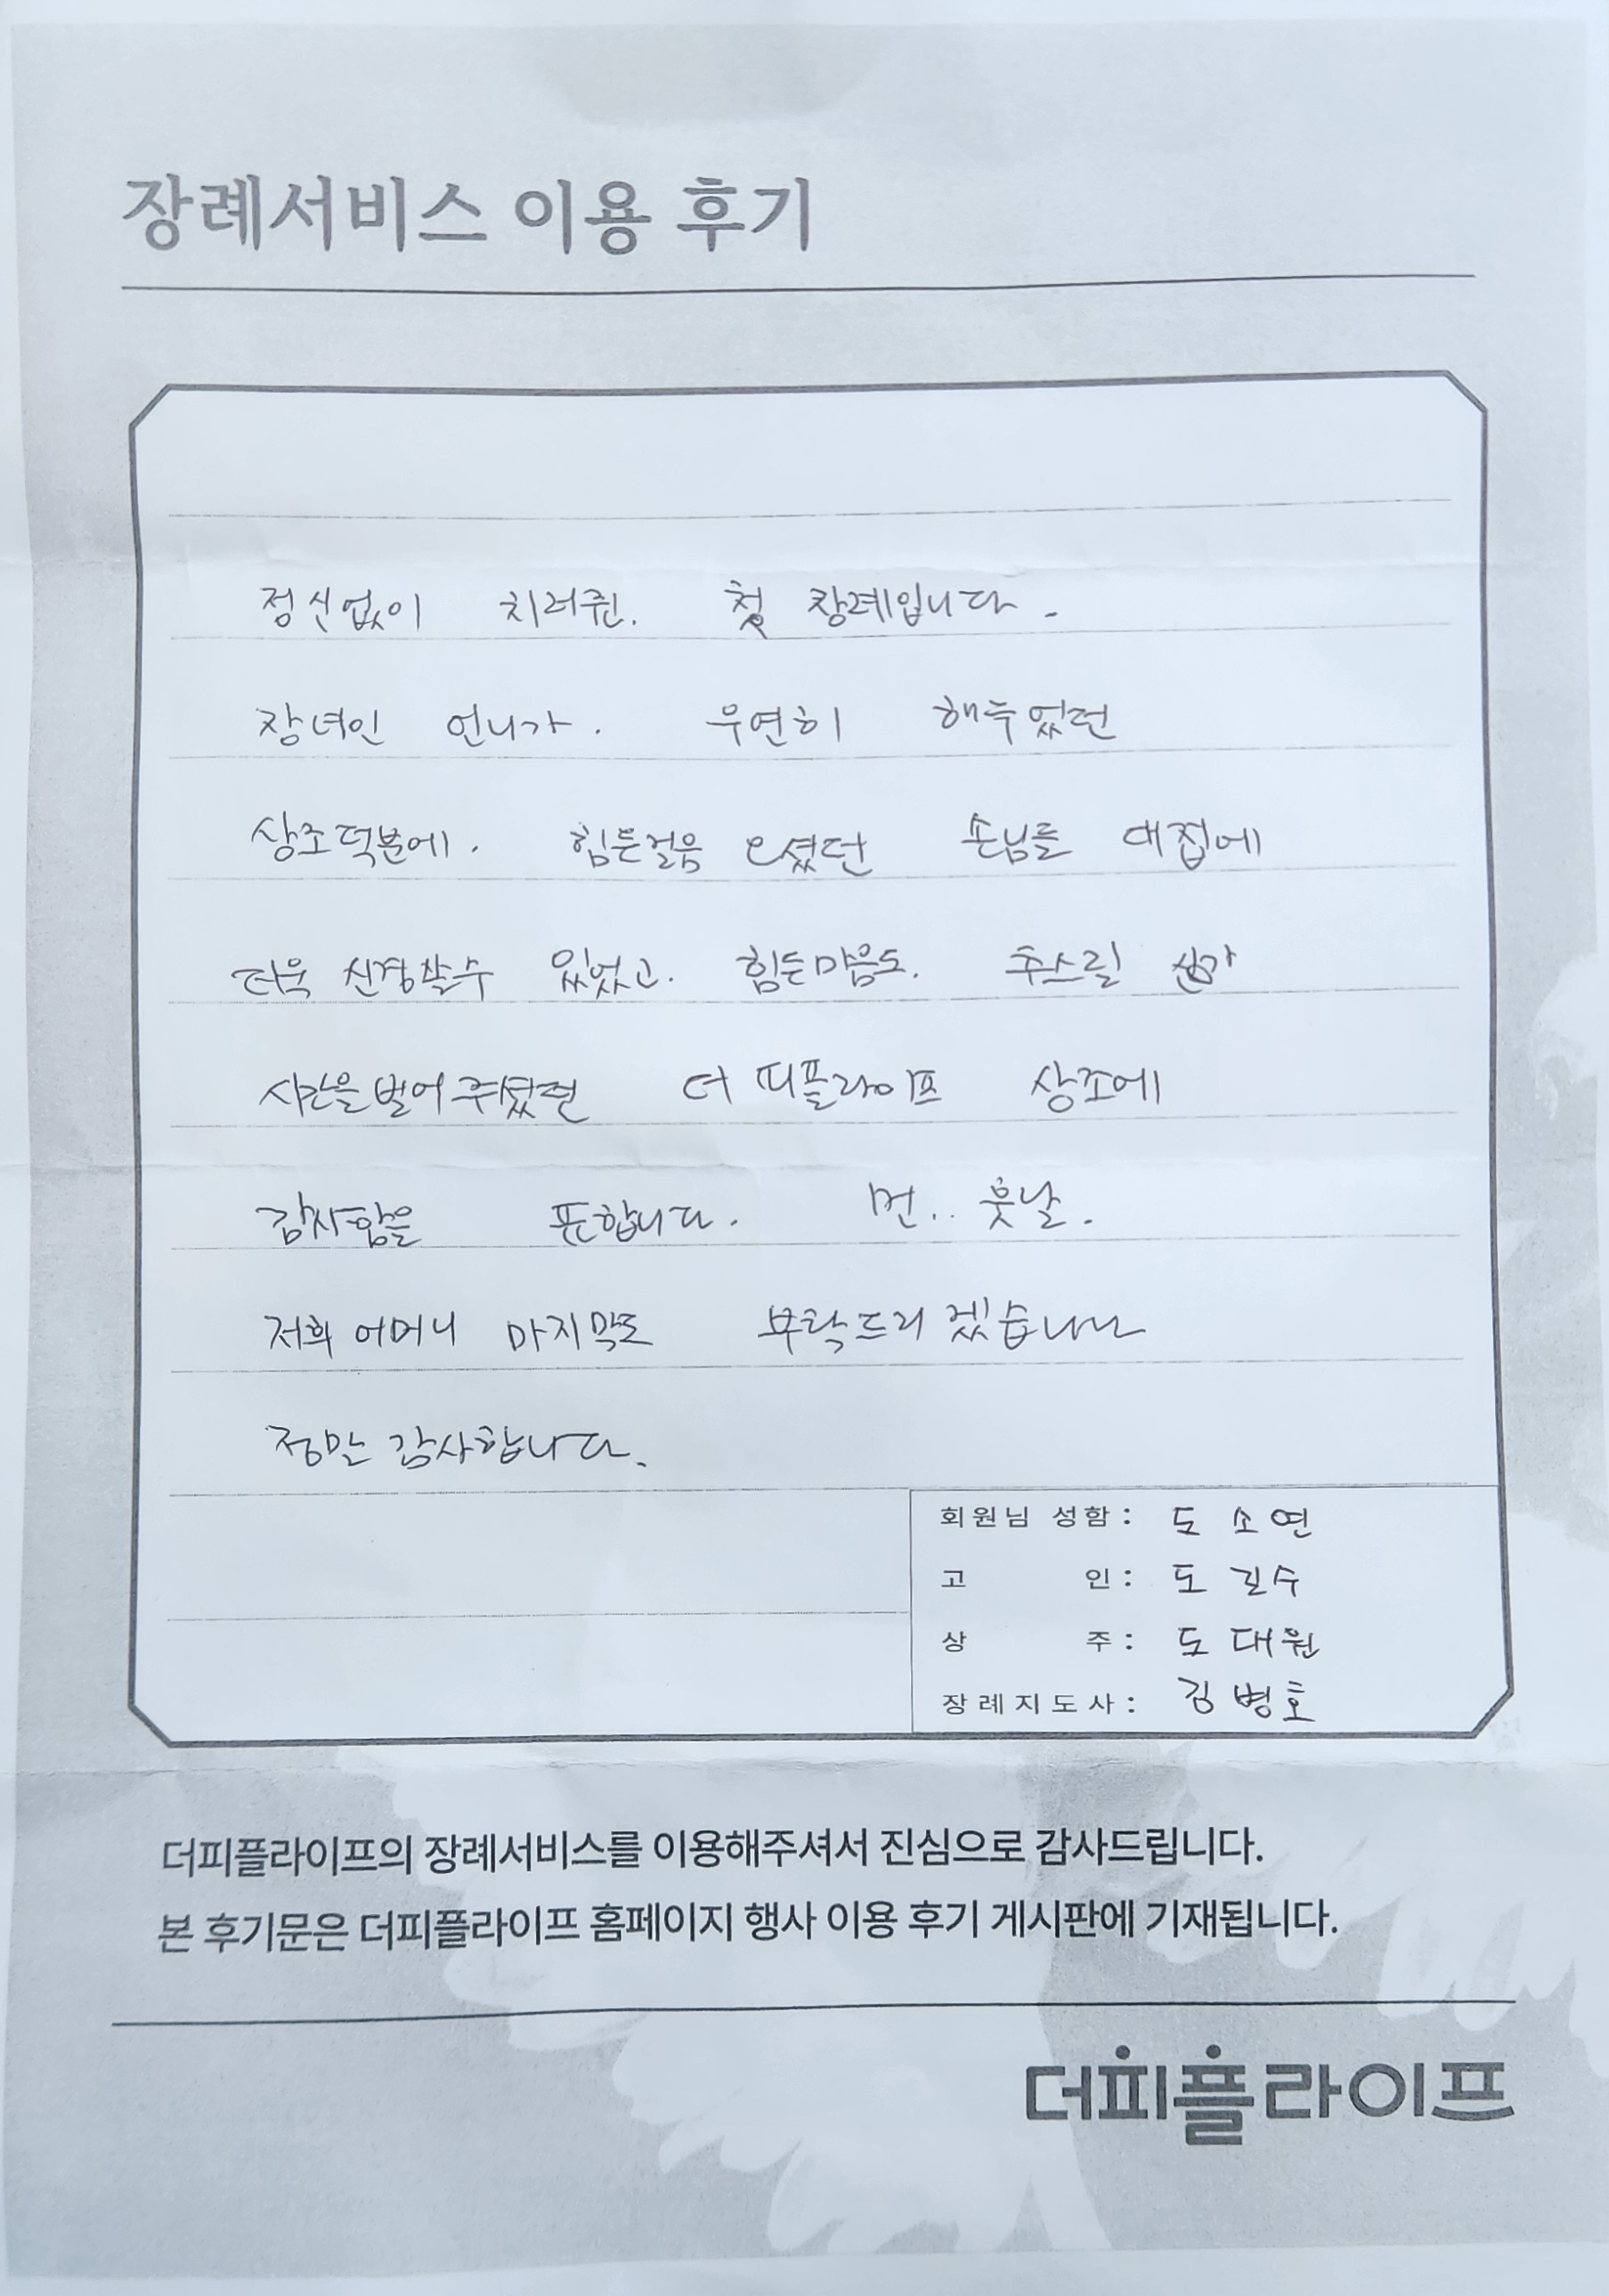 장례서비스 이용 후기
정신없이 치러쥔. 첫 장례입니다.
장녀인 언니가. 우연히 해두었던
상조덕분에. 힘든걸음 오셨던 손님들 대접에
더욱 신경쓸수 있었고. 힘든마음도. 추스릴
시간을 벌어주셨던 더 피플라이프 상조에
감사함을 표합니다. 먼.. 훗날.
저희 어머니 마지막도 부탁드리겠습니다
정말 감사합니다.
회원님 성함 : 도소연
고 인 : 도길수
상 주 : 도대원
장례지도사 : 김병호
더피플라이프의 장례서비스를 이용해주셔서 진심으로 감사드립니다.
본 후기문은 더피플라이프 홈페이지 행사 이용 후기 게시판에 기재됩니다.
더피플라이프